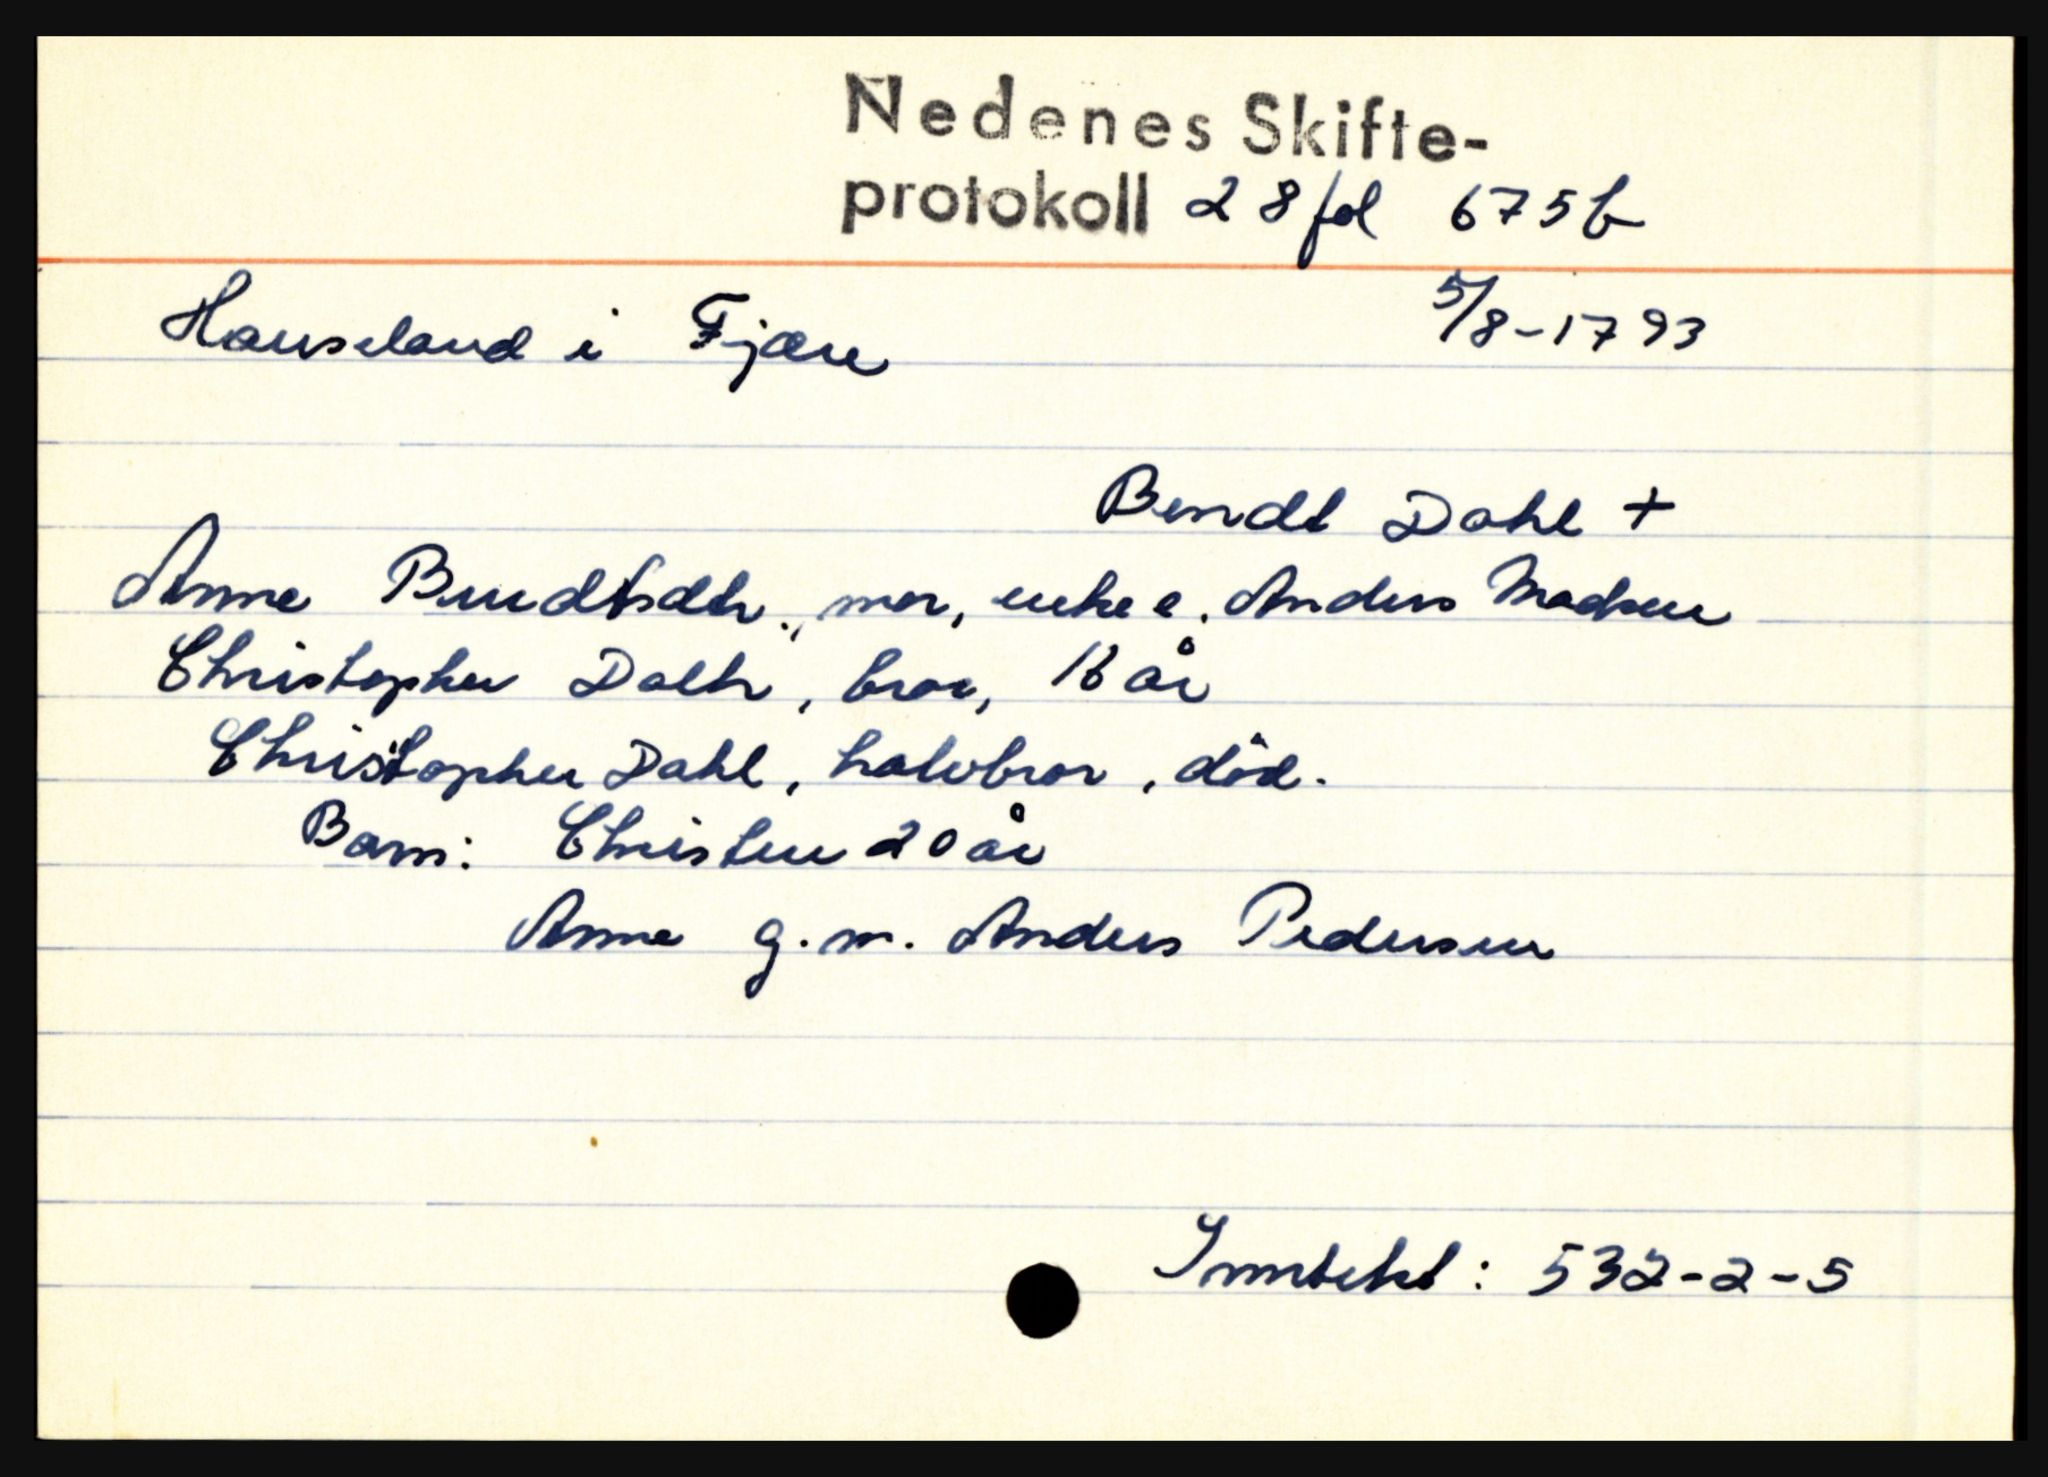 Nedenes Skifte-
protokoll 28 fol 675b
Hauseland i Fjære 5/8-1793
Bendt Dahl +
Anne Bendtsdtr., mor, enke e. Anders Madsen
Christopher Dalh, bror, 16 år
Christopher Dahl, halvbror, död.
Barn: Christen 20 år
Anne g.m. Anders Pedersen
Inntekt: 532-2-5